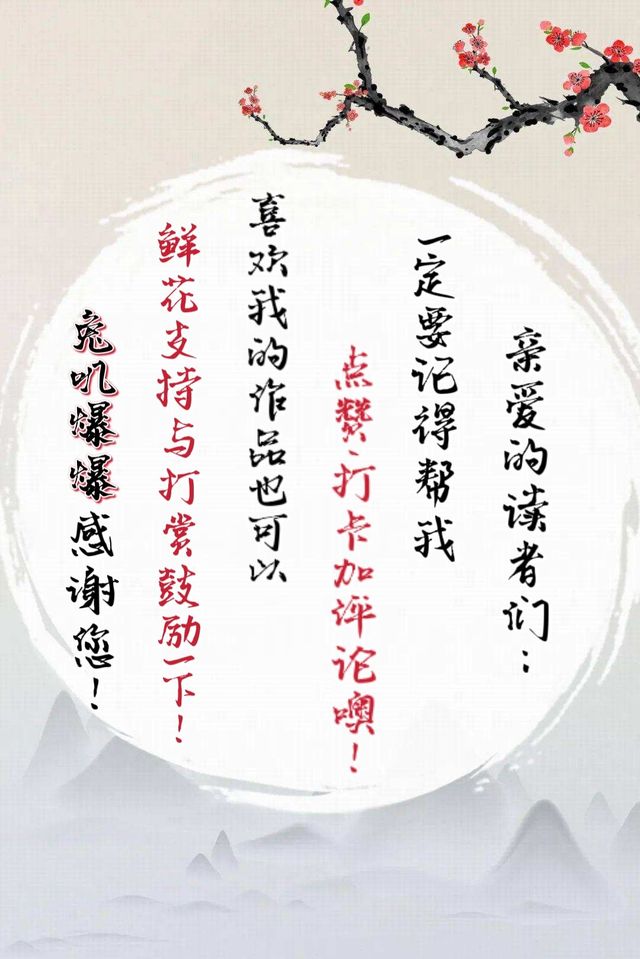 亲爱的读者们：
一定要记得帮我
点赞、打卡加评论噢！
喜欢我的作品也可以
鲜花支持与打赏鼓励一下！
兔叽爆爆感谢您！